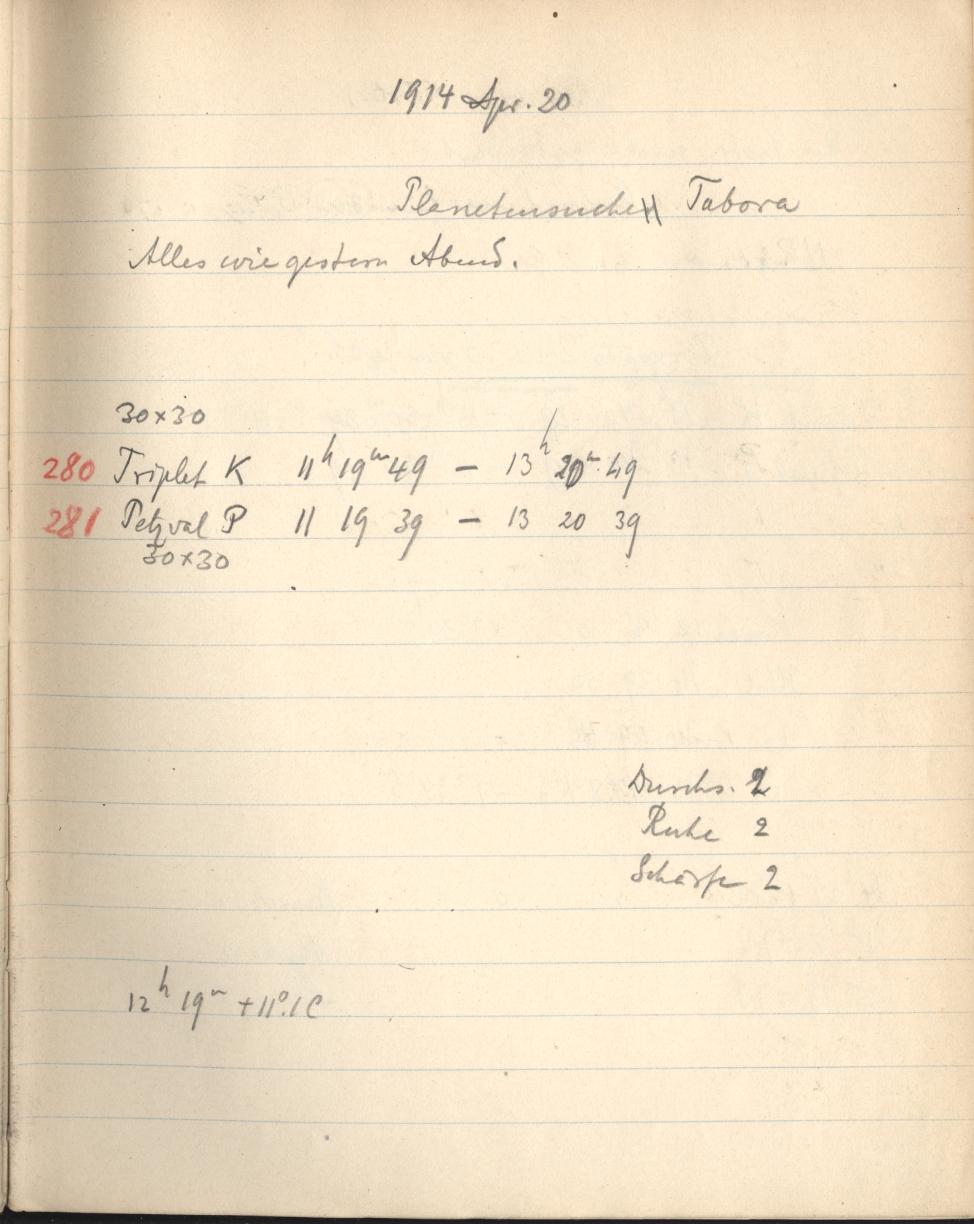 1914 Apr. 20
Planetensuche Tabora
Alles wie gestern Abend.
30×30
280 Triplet K 11h 19m 49 – 13h 20m 49
281 Petzval P 11 19 39 – 13 20 39
30×30
Durchs. 2
Ruhe 2
Schärfe 2
12h 19m +11°.1 C